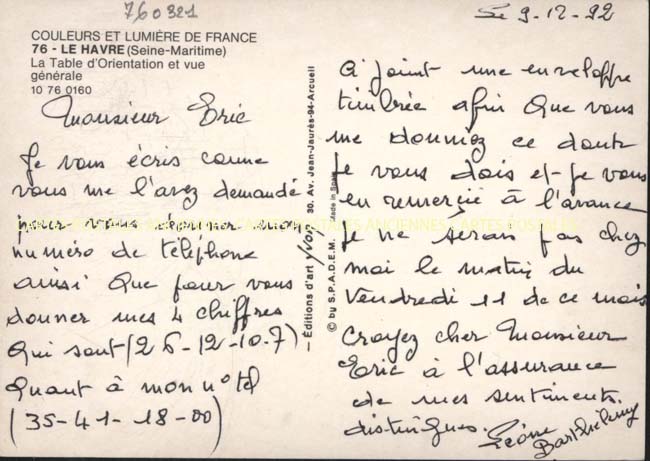 760321
COULEURS ET LUMIÈRE DE FRANCE
76 - LE HAVRE (Seine-Maritime)
La Table d'Orientation et vue
générale
10 76 0160
Monsieur Eric
Je vous écris comme
vous me l'avez demandé
pour vous donner mon
numéro de téléphone
ainsi que pour vous
donner mes 4 chiffres
qui sont (26-12-10-7)
Quant à mon n° tel
(35-41-18-00)
— Éditions d'art YVON, 30, Av. Jean-Jaurès-94-Arcueil
© by S.P.A.D.E.M. Made in Spain
CARTES POSTALES ANCIENNES CARTES POSTALES
Le 9-12-92
a joint une enveloppe
timbrée afin que vous
me donniez ce dont
je vous dois et je vous
en remercie à l'avance
je ne serais pas chez
moi le matin du
Vendredi 11 de ce mois
Croyez cher Monsieur
Eric à l'assurance
de mes sentiments.
distingués.
Léone
Barthélemy